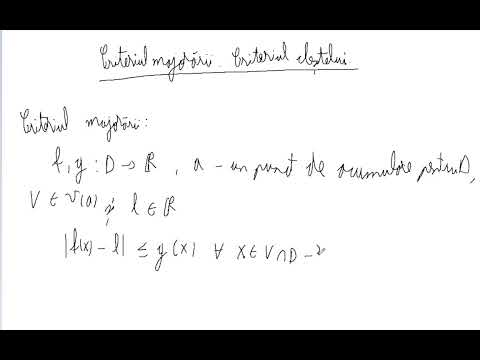 Criteriul majorării. Criteriul cleștelui
Criteriul majorării:
f, g : D → ℝ, a - un punct de acumulare pentru D,
V ∈ 𝒱(a) și l ∈ ℝ
|f(x) - l| ≤ g(x) ∀ x ∈ V ∩ D -